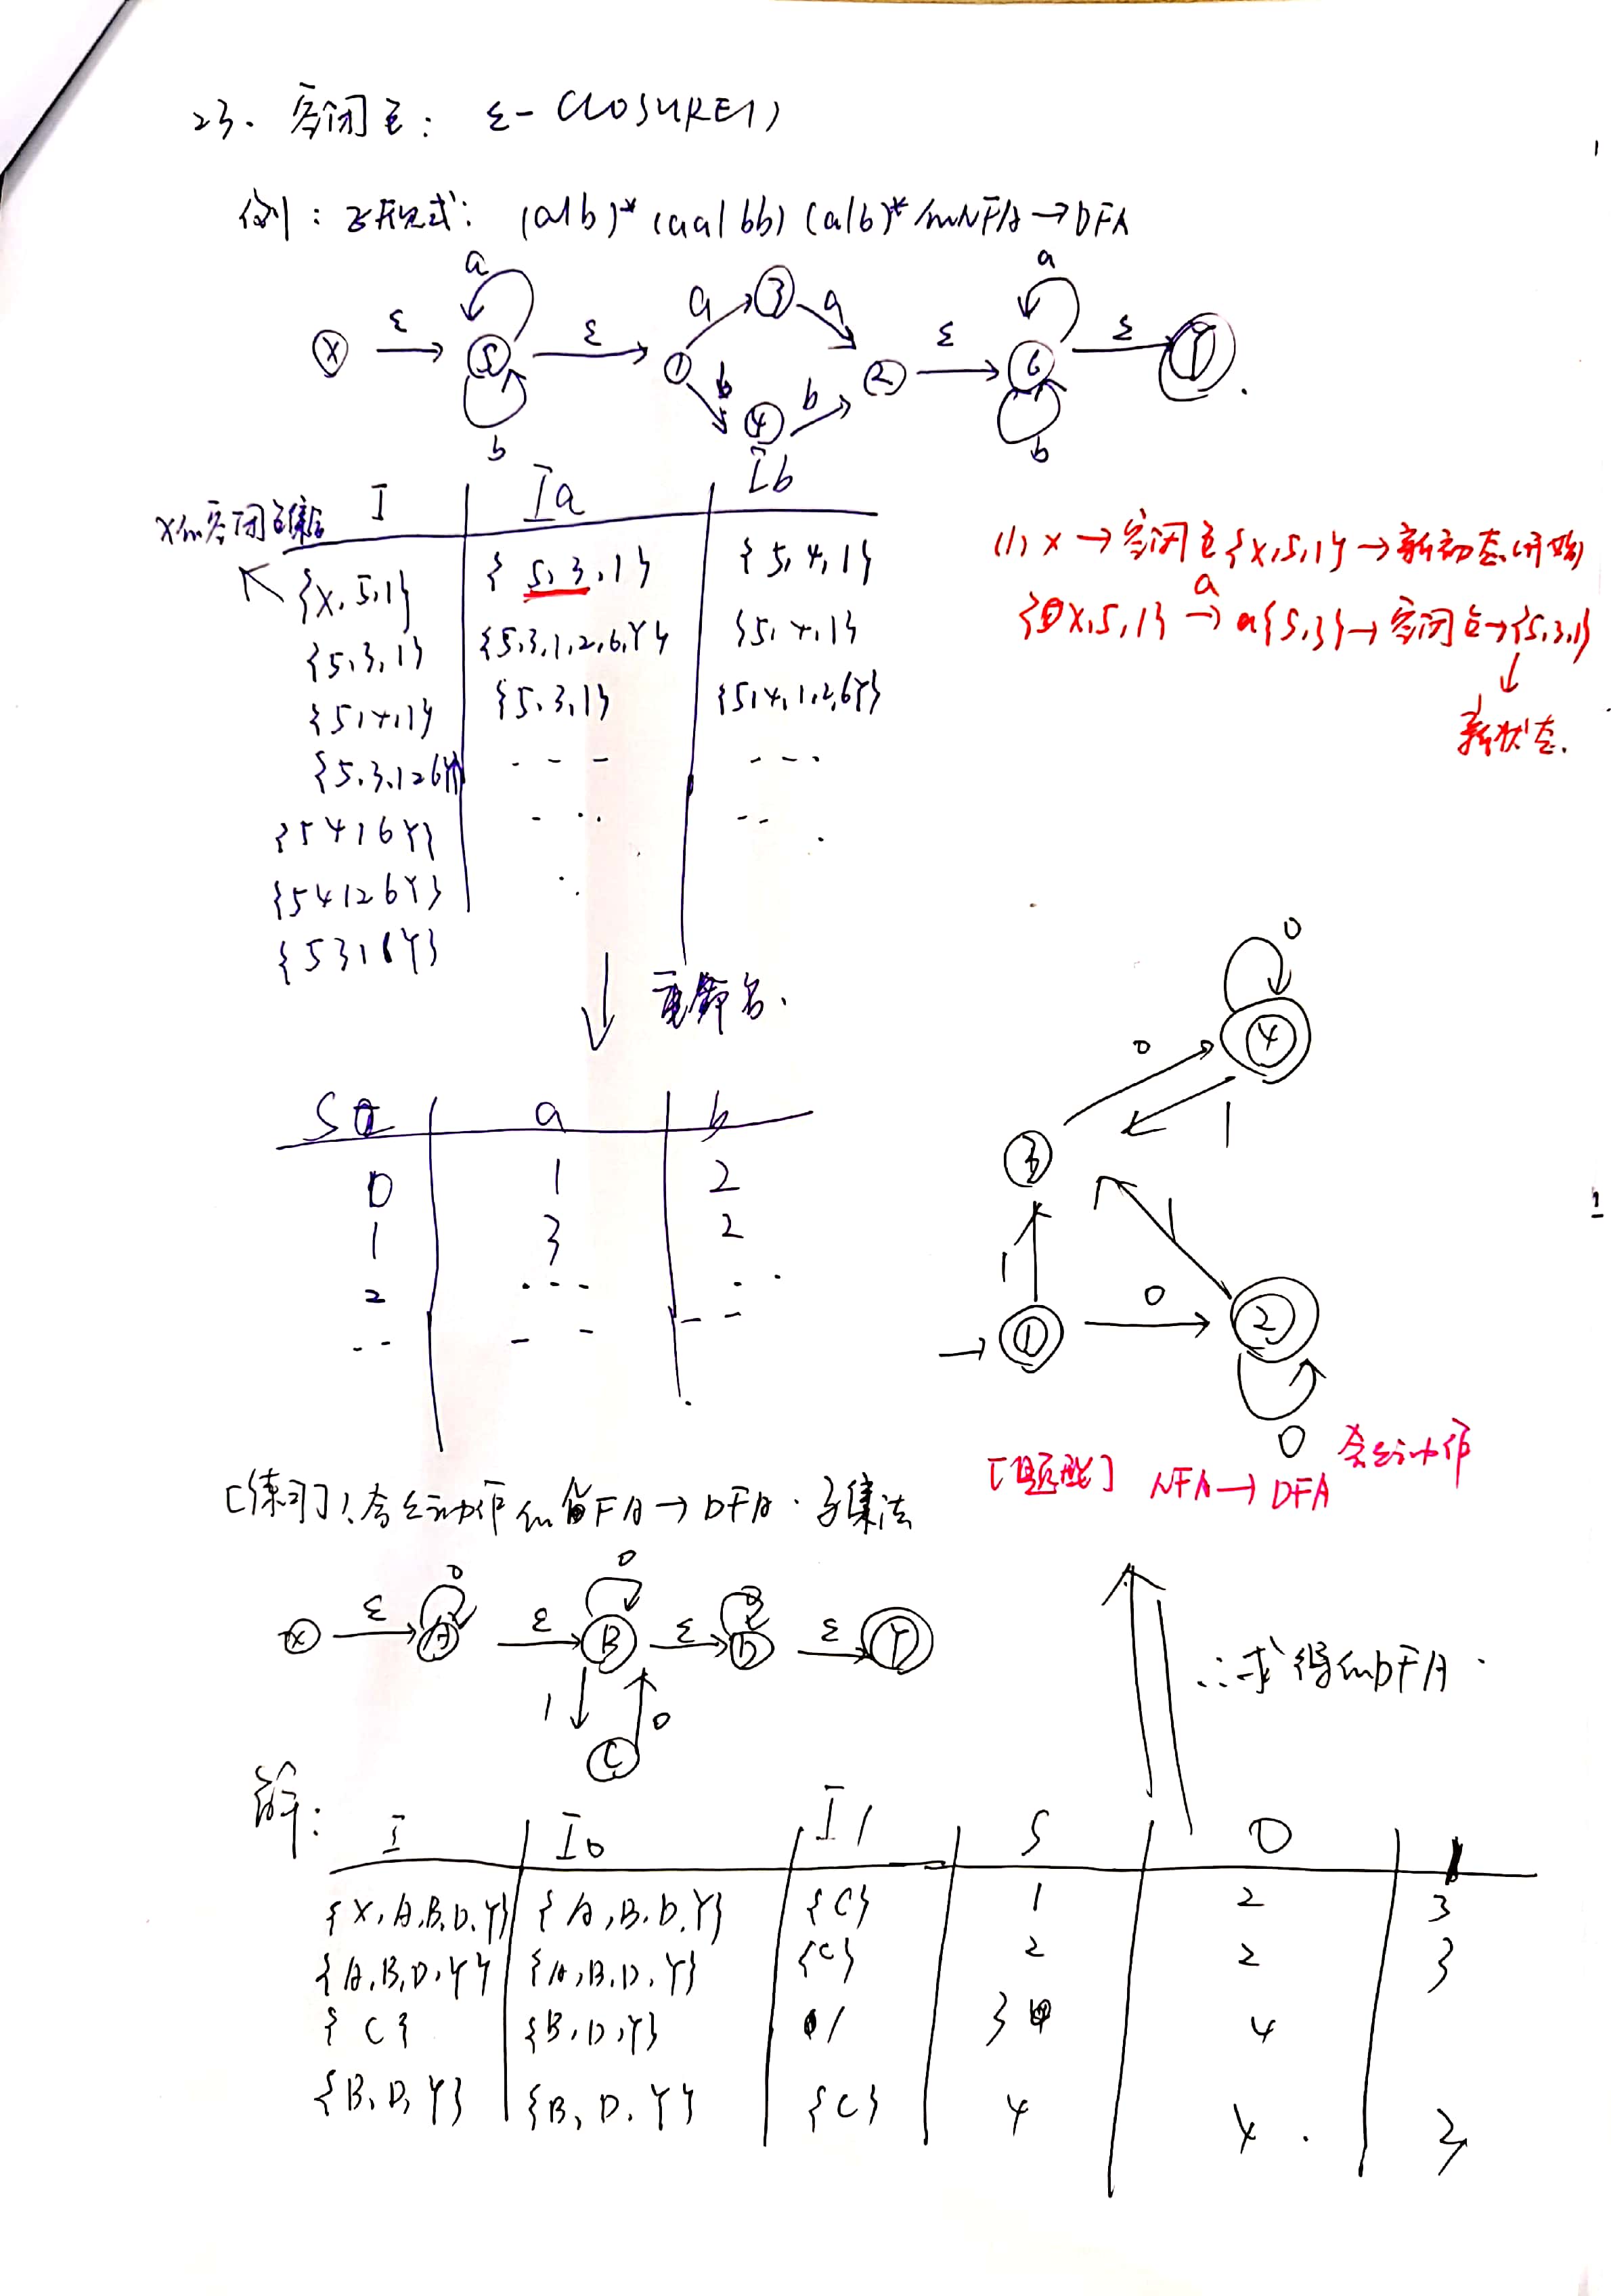 23. 空闭包: ε-CLOSURE()
例: 正规式: (a|b)*(aa|bb)(a|b)* 的NFA→DFA
a a
ε ε a 3 a ε ε
X 5 1 2 6 Y
b 4 b
b b
X的空闭包集合 I Ia Ib
{X,5,1} {5,3,1} {5,4,1}
{5,3,1} {5,3,1,2,6,Y} {5,4,1}
{5,4,1} {5,3,1} {5,4,1,2,6Y}
{5,3,126Y} --- ---
{5416Y} - ·· --
{54126Y}
{5316Y}
(1) X → 空闭包{X,5,1} → 新初态(开始)
{X,5,1} a→ a{5,3} → 空闭包→{5,3,1}
新状态.
重命名.
S a b
0 1 2
1 3 2
2 --- ---
-- -- --
0
4
0 1
3
1 1
1 0 2
0
[题型] NFA→DFA 含ε动作
[练习] 含ε动作的FA→DFA·子集法
0 0
X ε A ε B ε D ε Y
1 0
C
∴求得的DFA.
解:
I I0 I1 S 0 1
{X,A,B,D,Y} {A,B,D,Y} {C} 1 2 3
{A,B,D,Y} {A,B,D,Y} {C} 2 2 3
{C} {B,D,Y} / 3 4
{B,D,Y} {B,D,Y} {C} 4 4 3